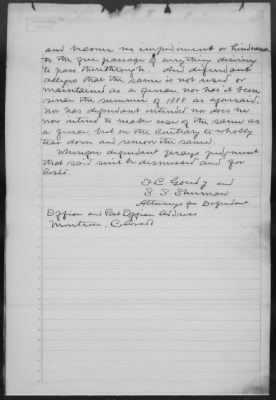 and become no impediment or hindrance
to the free passage of anything desiring
to pass therethrough. And defendant
alleges that the same is not used or
maintained as a fence, nor has it been
since the summer of 1888 as aforesaid.
nor has defendant intended nor does he
now intend to make use of the same as
a fence, but on the contrary to wholly
tear down and remove the same.
Wherefore defendant prays judgment
that said suit be dismissed and for
Costs.
D C Goudy and
S. S. Sherman
Attorneys for Defendant
Office and Post Office Address
Montrose, Colorado